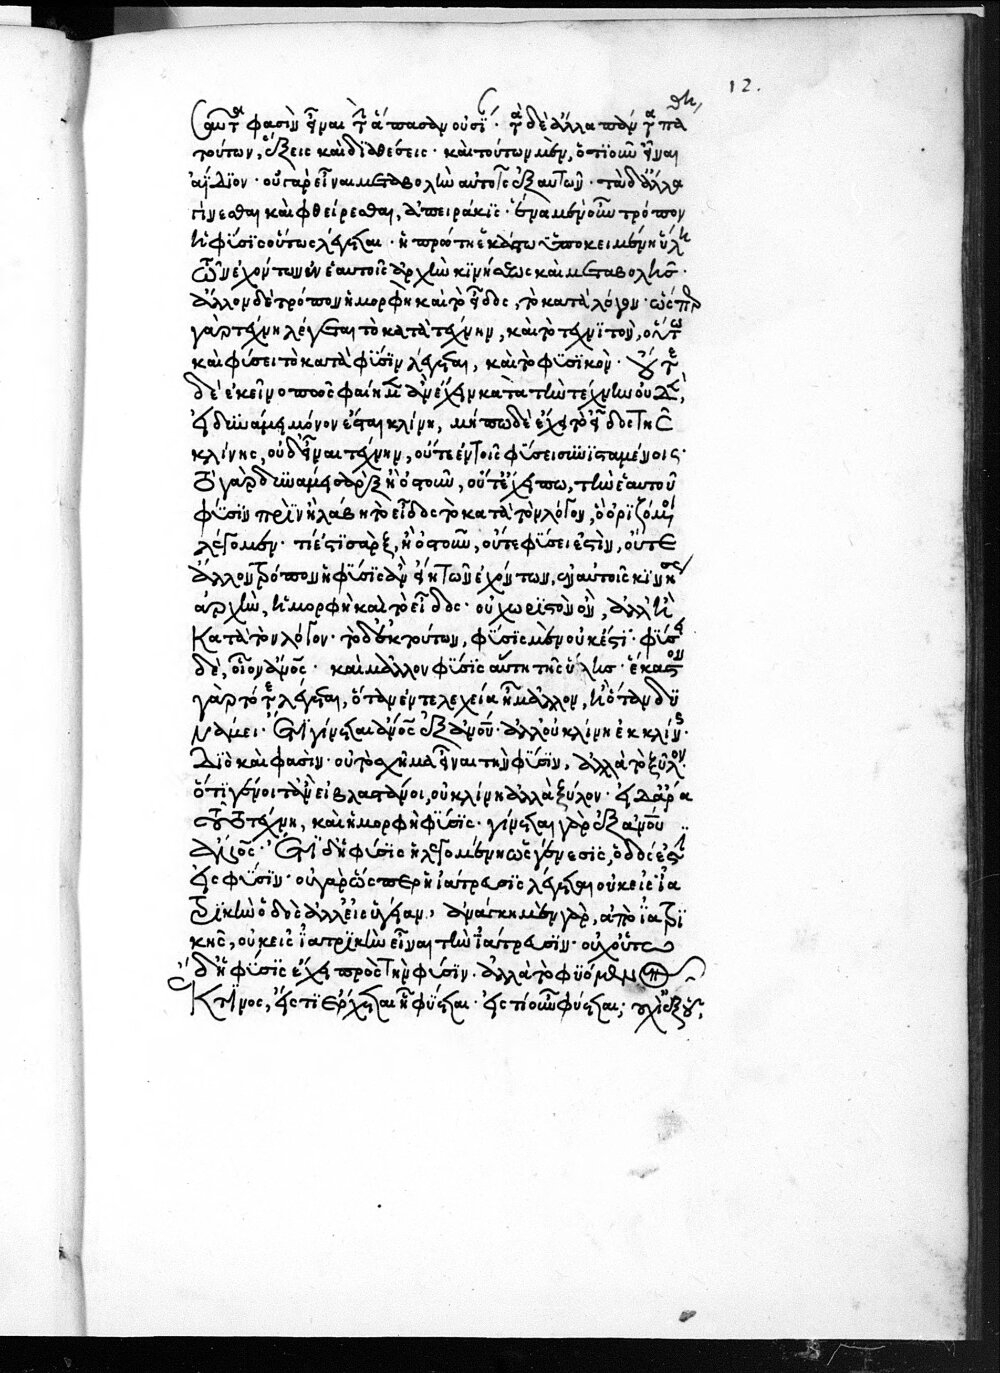 12.
σαύτην φασὶν εἶναι τὴν ἅπασαν οὐσίαν· τὰ δὲ ἄλλα πάντα πάθη
τούτων, ἕξεις καὶ διαθέσεις· καὶ τούτων μὲν, ὁτιοῦν εἶναι
ἀΐδιον· οὐ γὰρ εἶναι μεταβολὴν αὐτοῖς ἐξ αὐτῶν· τὰ δ' ἄλλα
γίνεσθαι καὶ φθείρεσθαι, ἀπειράκις· ἕνα μὲν οὖν τρόπον
ἡ φύσις οὕτως λέγεται· ἡ πρώτη ἑκάστω ὑποκειμένη ὕλη
τῶν ἐχόντων ἐν ἑαυτοῖς ἀρχὴν κινήσεως καὶ μεταβολῆς·
ἄλλον δὲ τρόπον ἡ μορφὴ καὶ τὸ εἶδος, τὸ κατὰ λόγον· ὥσπερ
γὰρ τέχνη λέγεται τὸ κατὰ τέχνην, καὶ τὸ τεχνϊτὸν, οὕτω
καὶ φύσει τὸ κατὰ φύσϊν λέγεται, καὶ τὸ φυσϊκὸν· οὔτε
δὲ ἐκεῖνο πως φαίημεν ἂν ἔχειν κατὰ τὴν τέχνην οὐδὲν,
εἰ δυνάμει μόνον ἐστι κλίνη, μήπω δὲ ἔχει τὸ εἶδος τῆς
κλίνης, οὐδ' εἶναι τέχνην, οὔτε ἐν τοῖς φύσει συνισταμένοις·
τὸ γὰρ δυνάμει σὰρξ ἢ ὀστοῦν, οὔτ' ἔχει πω, τὴν ἑαυτοῦ
φύσϊν πρὶν ἢ λάβη τὸ εἶδος τὸ κατὰ τὸν λόγον, ὃ ὁριζόμενοι
λέγομεν· τί ἐστι σὰρξ, ἢ ὀστοῦν, οὔτε φύσει ἐστὶν, ὥστε
ἄλλον τρόπον ἡ φύσις ἂν εἴη τῶν ἐχόντων, ἐν αὐτοῖς κινήσεως
ἀρχὴν, ἡ μορφὴ καὶ τὸ εἶδος· οὐ χωριστὸν ὂν, ἀλλ' ἢ
κατὰ τὸν λόγον· τὸ δ' ἐκ τούτων, φύσϊς μὲν οὐκ ἔστι· φύσει
δὲ, οἷον ἄνθρωπος· καὶ μᾶλλον φύσϊς αὕτη τῆς ὕλης· ἕκαστον
γὰρ τότε λέγεται, ὅταν ἐντελεχεία ἦ μᾶλλον, ἢ ὅταν δυ
νάμει· ἔτι γίνεται ἄνθρωπος ἐξ ἀνθρώπου· ἀλλ' οὐ κλίνη ἐκ κλίνης·
διὸ καὶ φασὶν· οὐ τὸ σχῆμα εἶναι τὴν φύσϊν, ἀλλὰ τὸ ξύλον·
ὅτι γένοιτ' ἂν εἰ βλαστάνοι, οὐ κλίνη ἀλλὰ ξύλον· εἰ δ' ἄρα
τοῦτο τέχνη, καὶ ἡ μορφὴ φύσϊς· γίνεται γὰρ ἐξ ἀνθρώπου
ἄνθρωπος· ἔτι δ' ἡ φύσις ἡ λεγομένη ὡς γένεσϊς, ὁδός ἐστιν
εἰς φύσϊν· οὐ γὰρ ὥσπερ ἡ ἰάτρευσϊς λέγεται οὐκ εἰς ἰα
τρϊκὴν ὁδὸς ἀλλ' εἰς ὑγείαν· ἀνάγκη μὲν γὰρ, ἀπὸ ἰατρϊ
κῆς, οὐκ εἰς ἰατρϊκὴν εἶναι τὴν ἰάτρευσϊν· οὐχ οὕτω
δ' ἡ φύσϊς ἔχει πρὸς τὴν φύσιν· ἀλλὰ τὸ φυόμενον
ἔκ τϊνος, εἴς τϊ ἔρχεται ἢ φύεται· εἰς τί οὖν φύεται; οὐχὶ ἐξ οὗ,